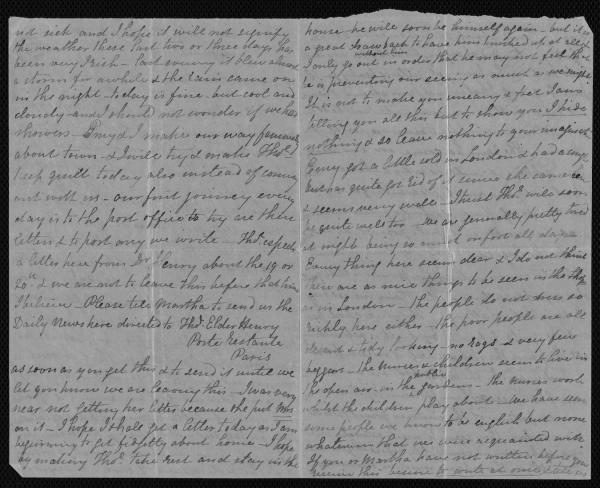 not sick and I hope it will not signify
the weather these last two or three days has
been very Irish - last evening it blew almost
a storm for awhile & the rain came on
in the night - today is fine but cool and
cloudy - and I should not wonder if we has
showers - Emy & I make our way famously
about town - & I will try & make Thos.
keep quiet today also instead of coming
out with us - our first journey every
day is to the post office to try are there
letters & to post any we write - Thos. expects
a letter here from Dr. Henry about the 19 or
20th & we are not to leave this before that time
I believe - Please tell Martha to send us the
Daily News here directed to Thos. Elder Henry
Poste Restante
Paris
as soon as you get this & to send it until we
let you know we are leaving this - I was very
near not getting her letter because she put Mrs
on it - I hope I shall get a letter today as I am
beginning to get fidgetty about home - I hope
by making Thos. take rest and stay in the
house he will soon be himself again - but it is
a great drawback to have him knocked up at all &
I only go out without him in order that he may not feel that
he is preventing our seeing as much as we might
It is not to make you uneasy & fret I am
telling you all this but to show you I hide
nothing & so leave nothing to your
Emy got a little cold in London & had a cough
but has quite got rid of it since she came
& seems very well - I trust Thos. will soon
be quite well too - We are generally pretty tired
at night being so much on foot all day
Every thing here seems dear & I do not think
there are as nice things to be seen in the shops
as in London - the people do not dress so
richly here either - the poor people are all
decent & tidy looking - no rags & very few
beggars - the nurses & children seem to live in
the open air in the public gardens - the nurses work
whilst the children play about - We have seen
some people we know to be english but none
whatever that we were acquainted with
If you or Martha have not written before you
receive this be sure to write at once